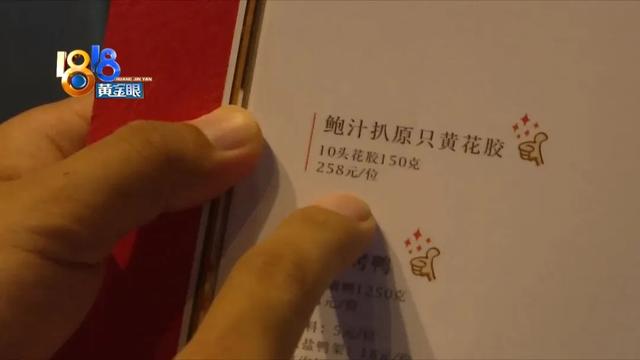 1818
HUANG JIN YAN
黄金眼
鲍汁扒原只黄花胶
10头花胶150克
258元/位
烤鸭
1250克
料：5元/位
盐鸭架：